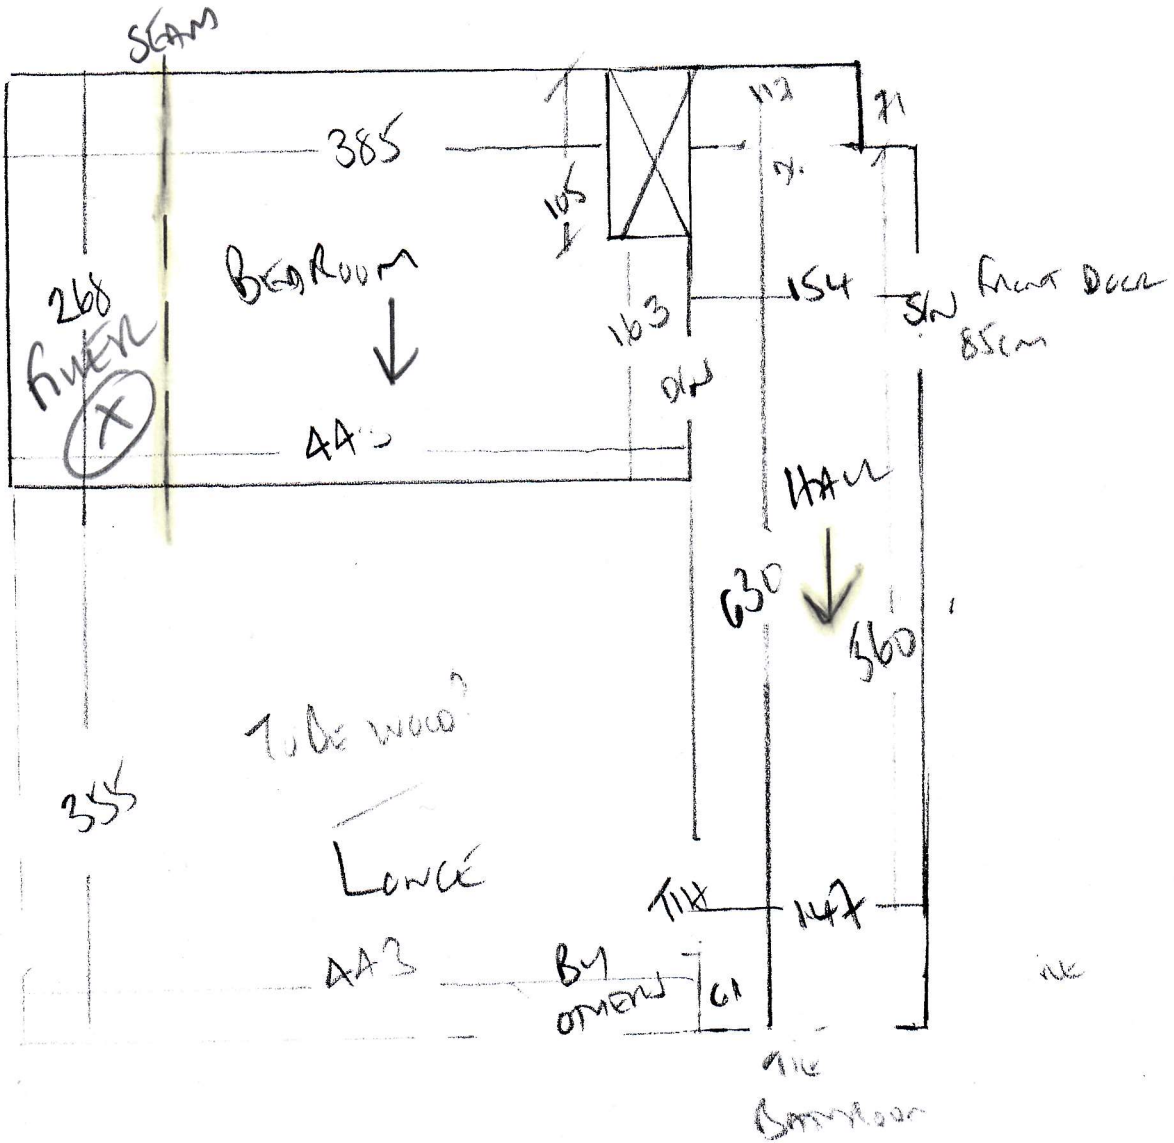 SEAM
385
112
71
105
BEDROOM
268
FILLER
X
163
154
S/N
FRONT DOOR
85cm
D/N
443
HALL
630
560
TO BE WOOD?
355
LONGE
T/H
147
443
BY
OTHERS
61
TILE
BATHROOM